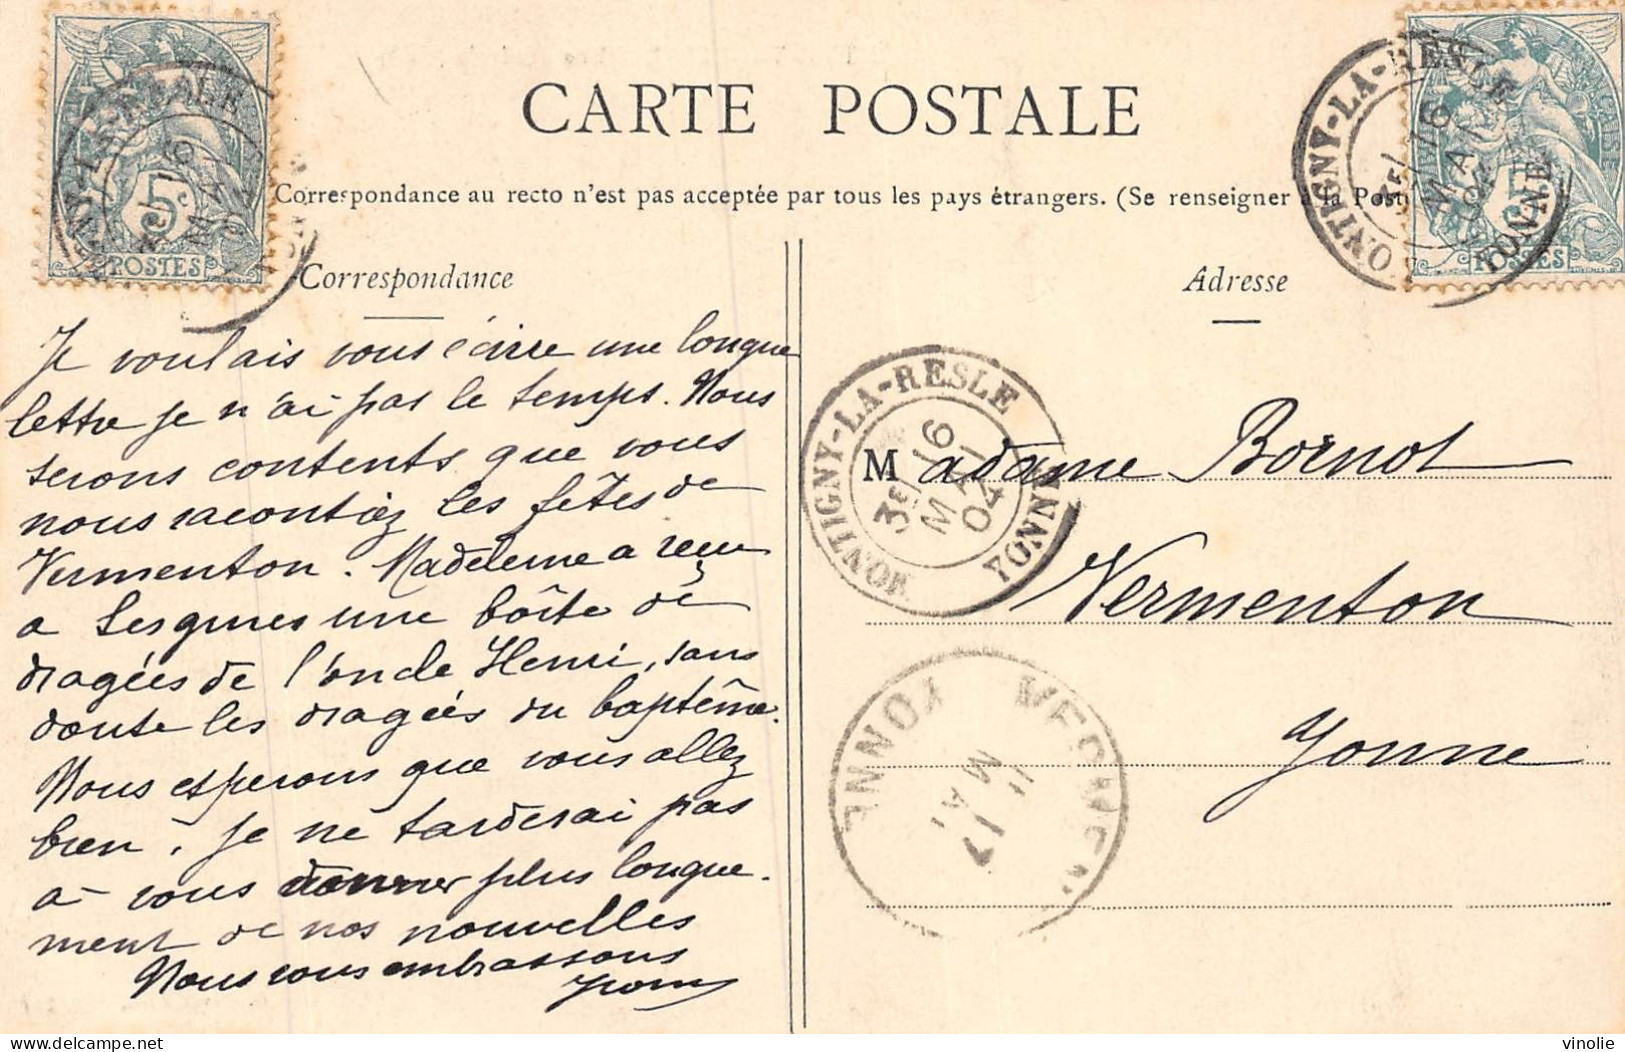 CARTE POSTALE
Correspondance au recto n'est pas acceptée par tous les pays étrangers. (Se renseigner à la Post
Correspondance
Adresse
Je voulais vous écrire une longue
lettre je n'ai pas le temps. Nous
serons contents que vous
nous racontiez les fêtes de
Vermenton. Madeleine a reçu
a Sergines une boîte de
dragées de l'oncle Henri, sans
doute les dragées du baptême.
Nous esperons que vous allez
bien, je ne tarderai pas
à vous donner plus longue-
ment de nos nouvelles
Nous vous embrassons
Madame Bornot
Vermenton
Yonne
MONTIGNY-LA-RESLE
3E/16
MAI
04
YONNE
ONTIGNY-LA-RESLE
3E/16
MAI
04
YONNE
NY-LA-RESLE
16
5c
POSTES
5
POSTES
17
MAI
YONNE
delcampe.net
vinolie